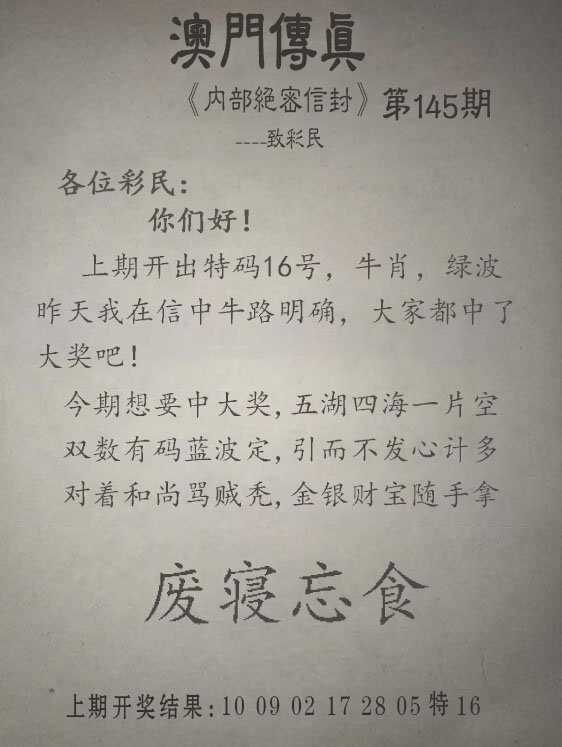 澳門傳真
《内部絕密信封》第145期
----致彩民
各位彩民：
你们好！
上期开出特码16号，牛肖，绿波
昨天我在信中牛路明确，大家都中了
大奖吧！
今期想要中大奖，五湖四海一片空
双数有码蓝波定，引而不发心计多
对着和尚骂贼秃，金银财宝随手拿
废寝忘食
上期开奖结果：10 09 02 17 28 05 特 16